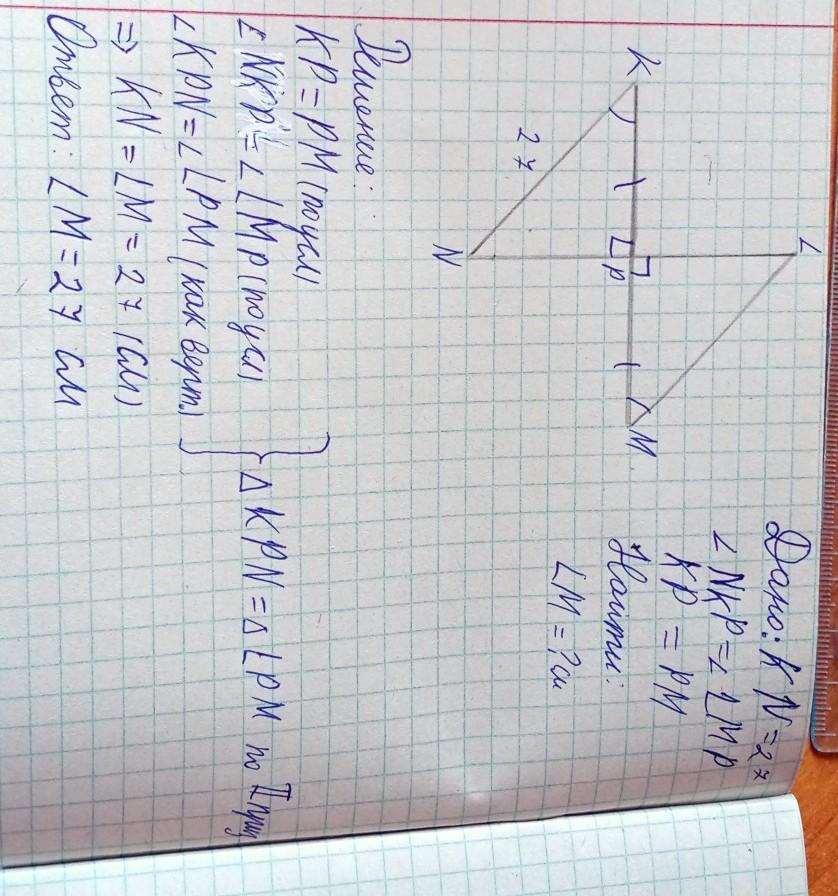 Дано: KN=27
∠NKP=∠LMP
KP=PM
Найти:
LM=?см
K
L
27
P
N
M
Решение:
KP=PM (по усл)
∠NKP=∠LMP (по усл)
∠KPN=∠LPM (как верт.)
△KPN=△LPM по II призн
⇒ KN=LM=27 (см)
Ответ: LM=27 см